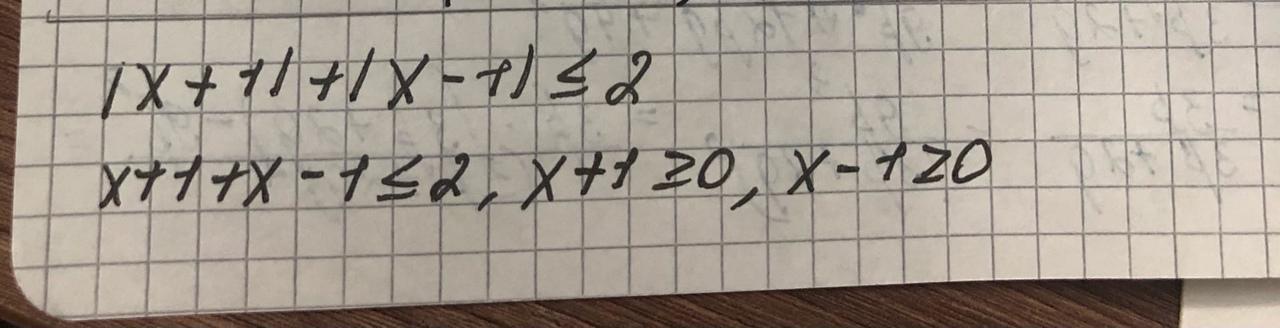 |x+1|+|x-1|≤2
x+1+x-1≤2, x+1≥0, x-1≥0